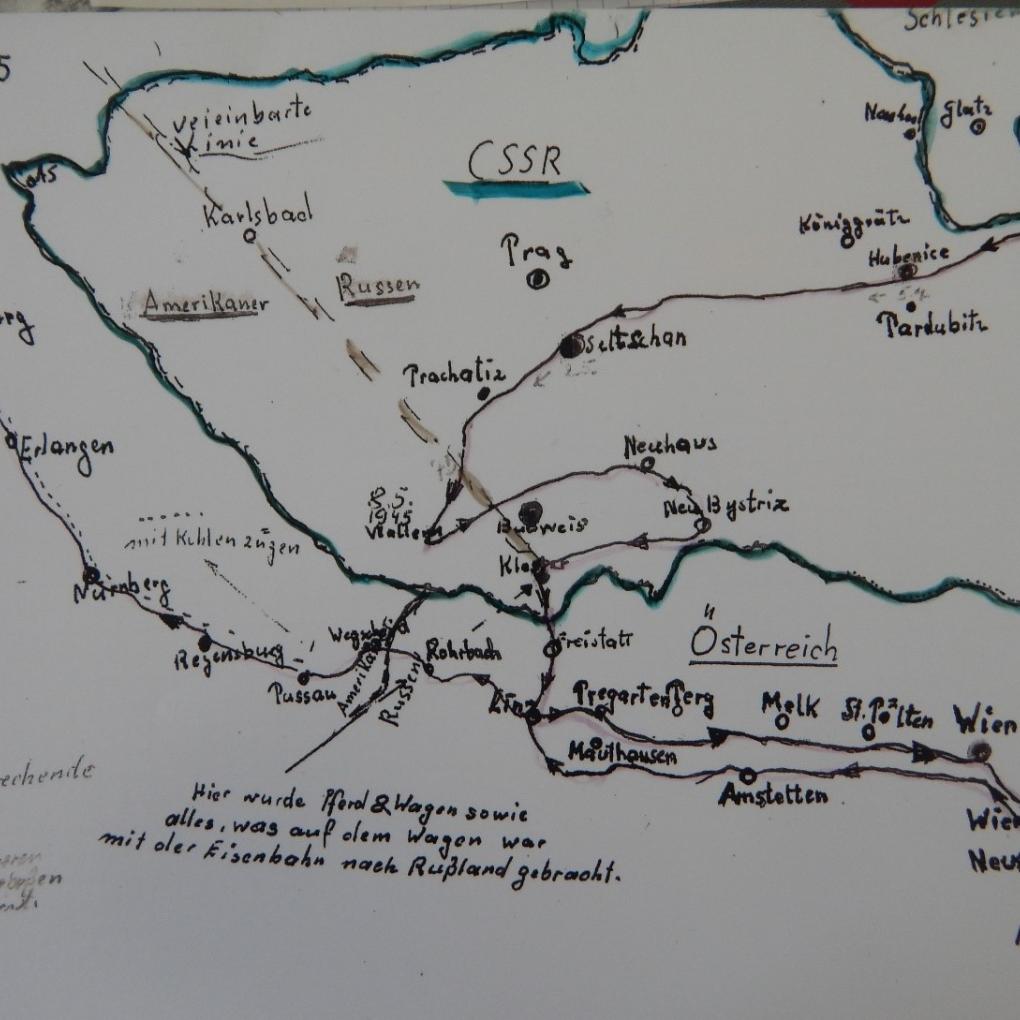 5
Schlesien
vereinbarte
Linie
CSSR
Glatz
as
Karlsbad
Königgrätz
Prag
Hubenice
Russen
Amerikaner
rg
Pardubitz
Seltschan
Prachatiz
Erlangen
Neuhaus
8.5.
1945
Wallern
Budweis
Neu Bystriz
mit Kohlen zügen
Nürnberg
Regensburg
Passau
Amerikaner
Russen
Rohrbach
Freistatt
Österreich
Linz
Pregarten
Perg
Melk
St. Pölten
Wien
Mauthausen
Amstetten
Wien
Neus
echende
Hier wurde Pferd & Wagen sowie
alles, was auf dem Wagen war
mit der Eisenbahn nach Rußland gebracht.